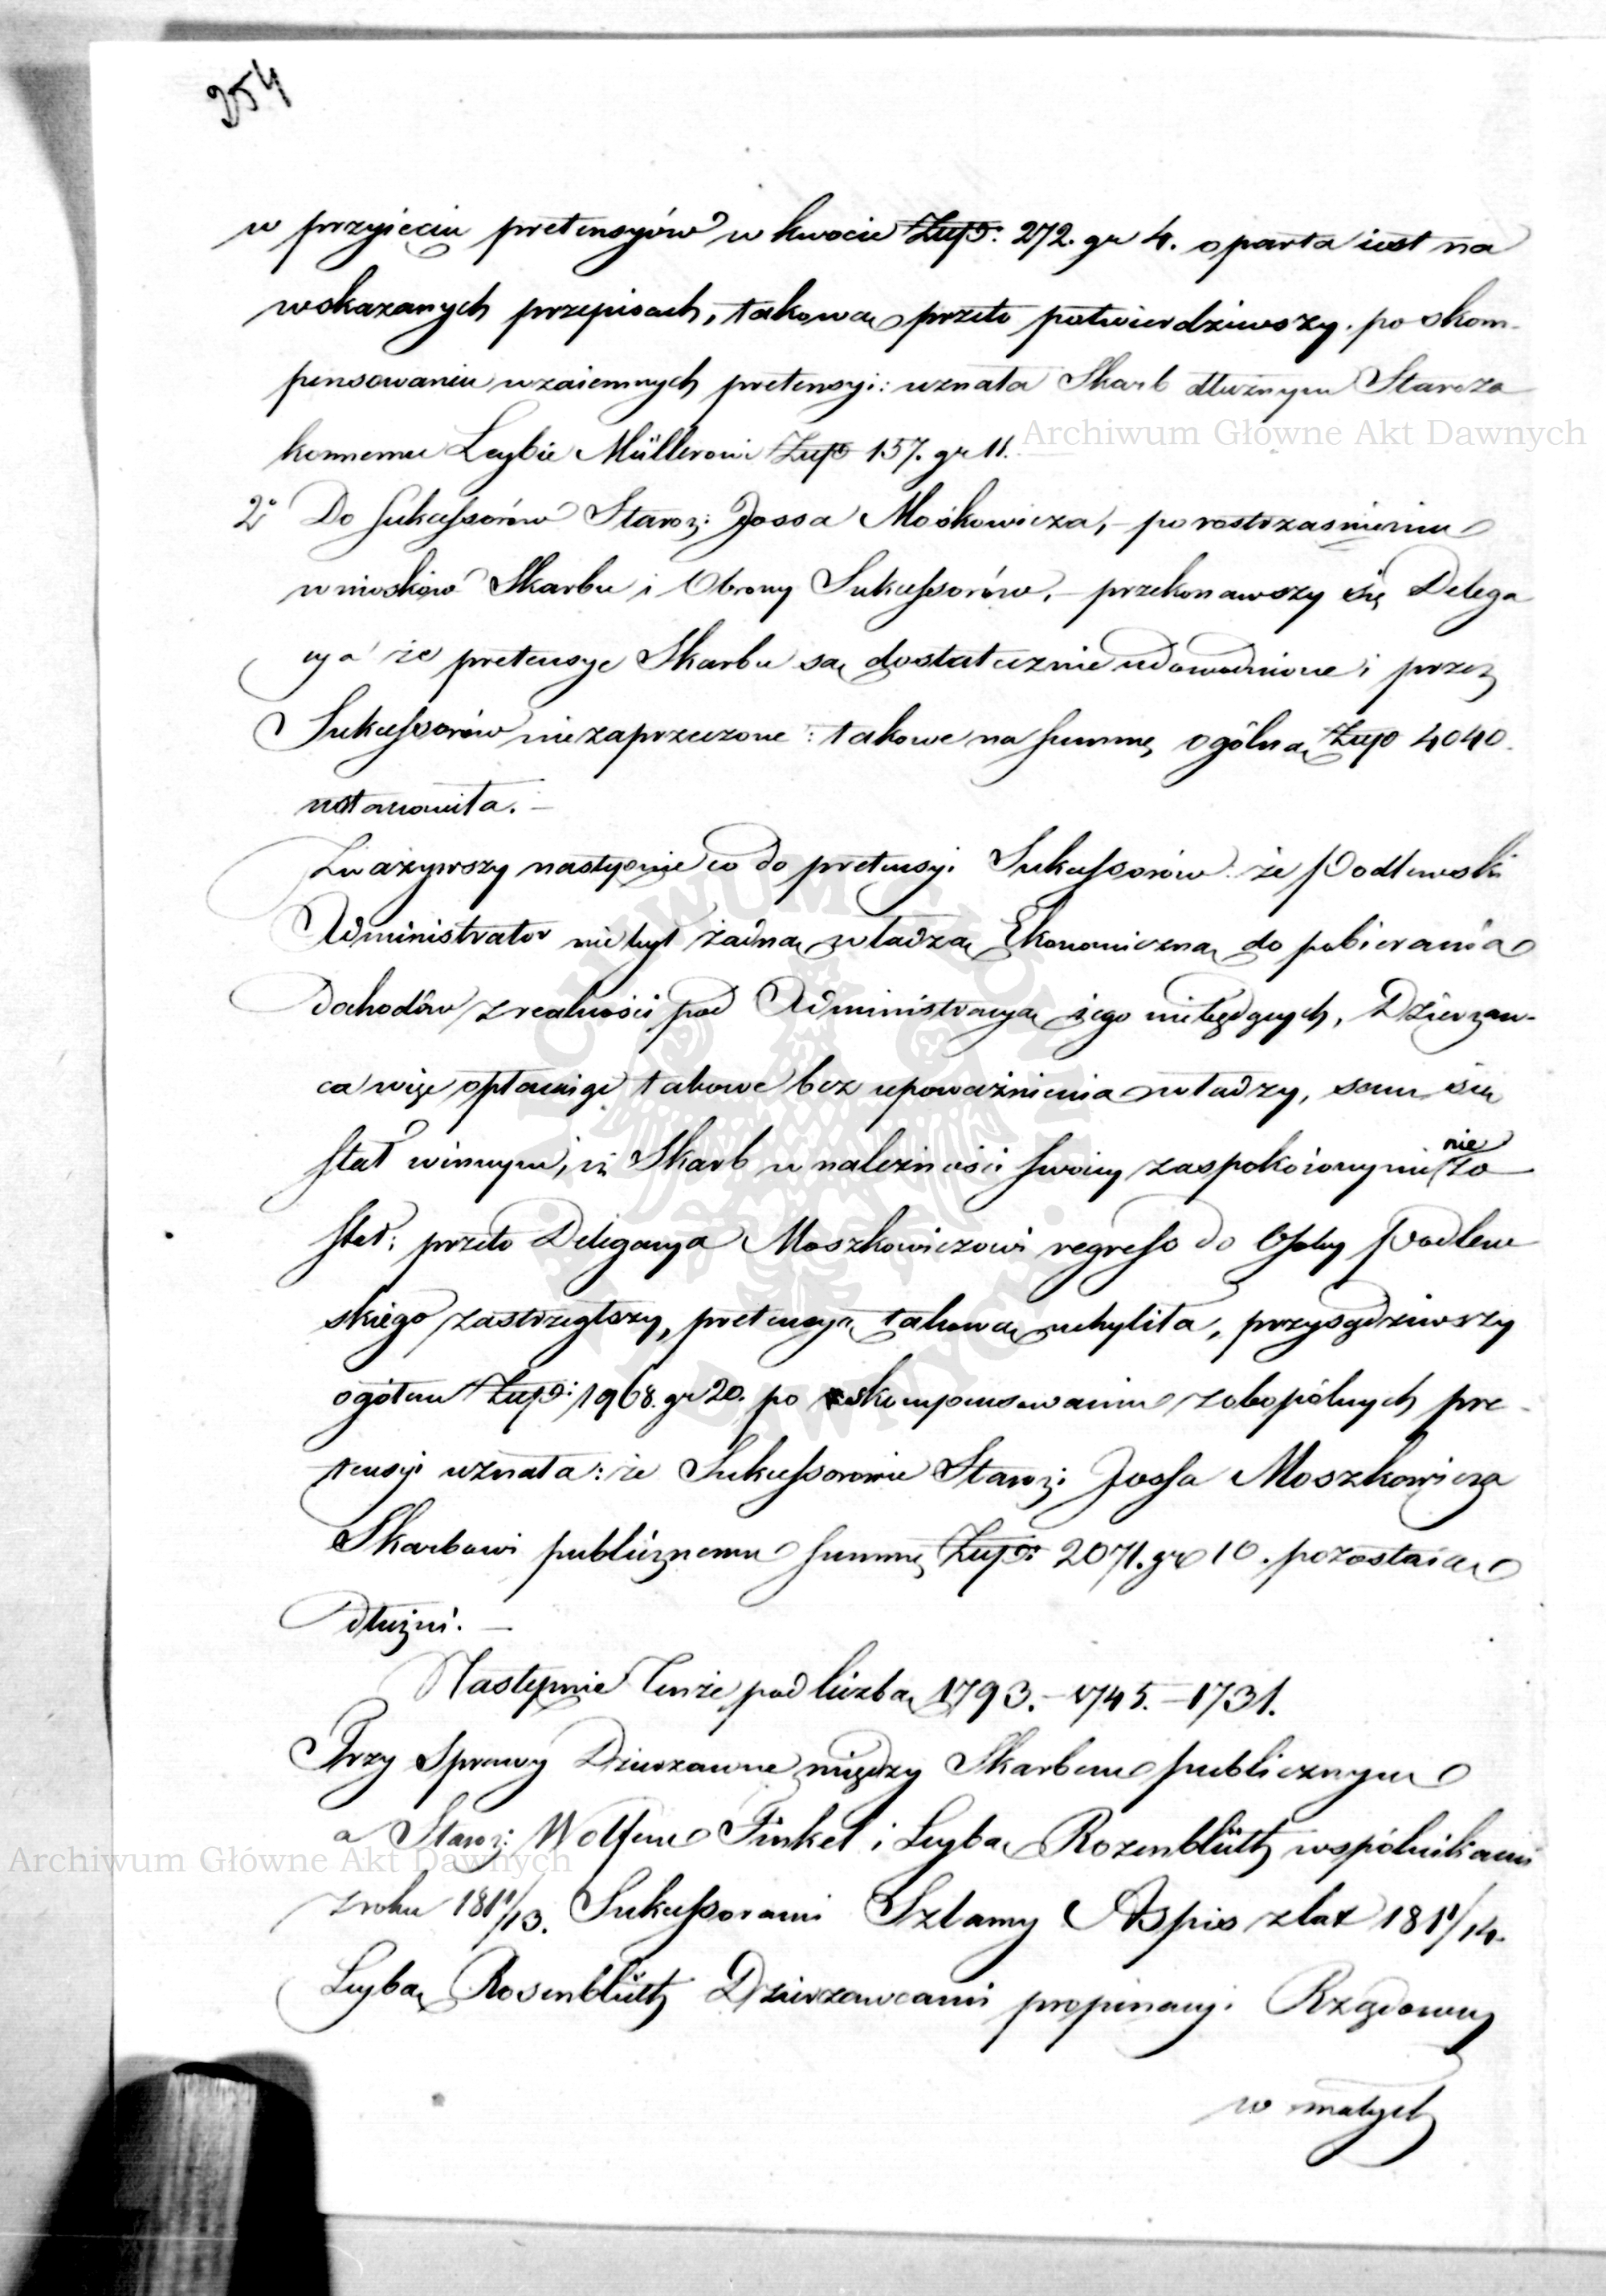 254
w przyięciu pretensyów w kwocie Złłp: 272. gr 4. oparta iest na
wskazanych przepisach, takową przeto potwierdziwszy. po skom-
pensowaniu wzaiemnych pretensyi: uznała Skarb dłużnym Staroza
konnemu Leybie Müllerowi Złłp 157. gr 11.
Archiwum Główne Akt Dawnych
2° Do Sukcessorów Staroz: Jossa Mośkowicza, – po rostrzaśnieniu
wniosków Skarbu i Obrony Sukcessorów, – przekonawszy się Delega
cya że pretensye Skarbu są dostatecznie udowodnione i przez
Sukcessorów niezaprzeczone: takowe na summę ogólną Złłp 4040.
ustanowiła. –
Zważywszy następnie co do pretensyi Sukcessorów: że Podlewski
Administrator niebył żadną władzą Ekonomiczną do pobierania
dochodów z realności pod Administracyą iego niebędących, Dzierżaw-
ca więc opłacaiąc takowe bez upoważnienia władzy, sam się
stał winnym, iż Skarb w należności swoiey zaspokoionym nie zo
nie
stał; przeto Delegacya Moszkowiczowi regress do Osoby Podlew
skiego zastrzegłszy, pretensyą takową uchyliła, przysądziwszy
ogółem Złłp: 1968. gr 20. po skompensowaniu zobopólnych pre-
tensyi uznała: że Sukcessorowie Staroz: Jossa Moszkowicza
Skarbowi publicznemu summę Złłp: 2071. gr 10. pozostaią
dłużni. –
Następnie Tenże pod liczbą 1793. – 1745. – 1731.
Trzy Sprawy Dzierżawne między Skarbem publicznym
a Staroz: Wolfem Finkel i Leybą Rozenblütt wspólnikami
Archiwum Główne Akt Dawnych
z roku 1811/13. Sukcessorami Szlamy Aspis z lat 1811/14.
Leybą Rosenblütt Dzierżawcami propinacyi Rządowey
w małych